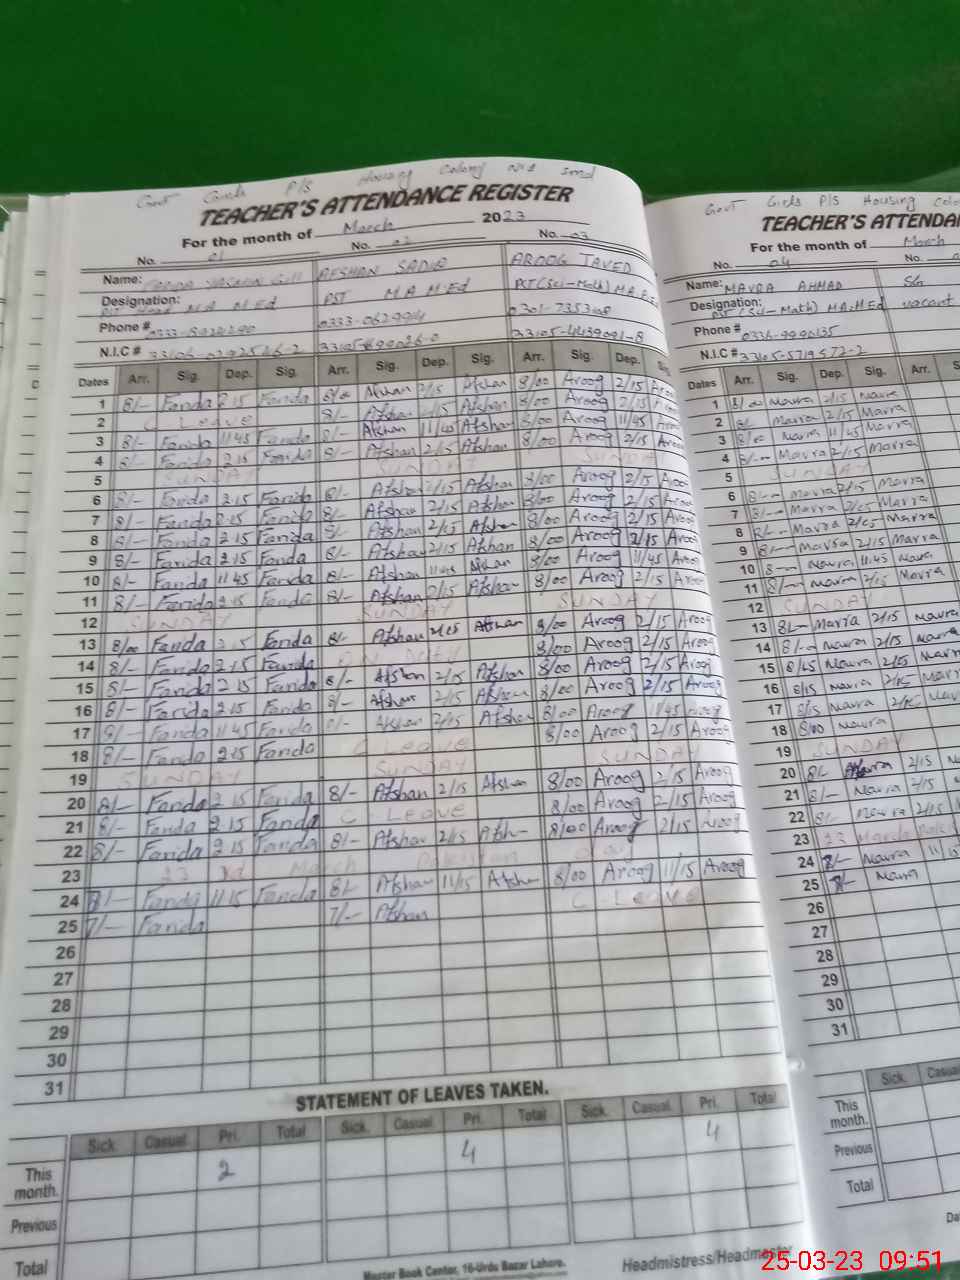 Govt Girls P/S Housing Colony
TEACHER'S ATTENDANCE REGISTER
For the month of March 2023
No. 01 No. 02 No. 03
Name: AFSHAN SADIA AROOG JAVED
Designation: M.A M.Ed PST M.A M.Ed PST (Sci-Math)
Phone #
N.I.C #
Dates Arr. Sig. Dep. Sig. Arr. Sig. Dep. Sig. Arr. Sig. Dep.
1 8/- Farida 2 15 Farida 8/00 Afshan 2/15 Afshan 8/00 Aroog 2/15 Aroog
2 C Leave 8/- Afshan 2/15 Afshan 8/00 Aroog 2/15 Aroog
3 8/- Farida 11 45 Farida 8/- Afshan 11/45 Afshan 8/00 Aroog 11/45 Aroog
4 8/- Farida 2 15 Farida 8/- Afshan 2/15 Afshan 8/00 Aroog 2/15 Aroog
5 SUNDAY SUNDAY SUNDAY
6 8/- Farida 2 15 Farida 8/- Afshan 2/15 Afshan 8/00 Aroog 2/15 Aroog
7 8/- Farida 2 15 Farida 8/- Afshan 2/15 Afshan 8/00 Aroog 2/15 Aroog
8 8/- Farida 2 15 Farida 8/- Afshan 2/15 Afshan 8/00 Aroog 2/15 Aroog
9 8/- Farida 2 15 Farida 8/- Afshan 2/15 Afshan 8/00 Aroog 2/15 Aroog
10 8/- Farida 11 45 Farida 8/- Afshan 11 45 Afshan 8/00 Aroog 11/45 Aroog
11 8/- Farida 2 15 Farida 8/- Afshan 2/15 Afshan 8/00 Aroog 2/15 Aroog
12 SUNDAY SUNDAY SUNDAY
13 8/00 Farida 2 15 Farida 8/- Afshan 2/15 Afshan 8/00 Aroog 2/15 Aroog
14 8/- Farida 2 15 Farida ON Duty 8/00 Aroog 2/15 Aroog
15 8/- Farida 2 15 Farida 8/- Afshan 2/15 Afshan 8/00 Aroog 2/15 Aroog
16 8/- Farida 2 15 Farida 8/- Afshan 2/15 Afshan 8/00 Aroog 2/15 Aroog
17 8/- Farida 11 45 Farida 8/- Afshan Afshan 8/00 Aroog 11 45 Aroog
18 8/- Farida 2 15 Farida C Leave 8/00 Aroog 2/15 Aroog
19 SUNDAY SUNDAY SUNDAY
20 8/- Farida 2 15 Farida 8/- Afshan 2/15 Afshan 8/00 Aroog 2/15 Aroog
21 8/- Farida 2 15 Farida C Leave 8/00 Aroog 2/15 Aroog
22 8/- Farida 2 15 Farida 8/- Afshan 2/15 Afshan 8/00 Aroog 2/15 Aroog
23 23 rd March Pakistan day
24 8/- Farida 11 15 Farida 8/- Afshan 11/15 Afshan 8/00 Aroog 11/15 Aroog
25 7/- Farida 7/- Afshan C Leave
26
27
28
29
30
31
STATEMENT OF LEAVES TAKEN.
Sick. Casual Pri. Total Sick. Casual Pri. Total Sick. Casual. Pri. Total
This month. 2 4 4
Previous
Total
Master Book Center, 16-Urdu Bazar Lahore.
Headmistress/Headmaster
Govt Girls P/S Housing
TEACHER'S ATTENDA
For the month of March
No. 04 No.
Name: MAVRA AHMAD
Designation: PST (Sci-Math) M.A M.Ed vacant
Phone # 0336-9990135
N.I.C #
Dates Arr. Sig. Dep. Sig. Arr.
1 8/00 Mavra 2/15 Mavra
2 8/- Mavra 2/15 Mavra
3 8/00 Mavra 11 45 Mavra
4 8/- Mavra 2/15 Mavra
5 SUNDAY
6 8/- Mavra 2/15 Mavra
7 8/- Mavra 2/15 Mavra
8 8/- Mavra 2/15 Mavra
9 8/- Mavra 2/15 Mavra
10 8/- Mavra 11 45 Mavra
11 8/- Mavra 2/15 Mavra
12 SUNDAY
13 8/- Mavra 2/15 Mavra
14 8/- Mavra 2/15 Mavra
15 8/45 Mavra 2/15 Mavra
16 8/15 Mavra 2/15 Mavra
17 8/15 Mavra
18 8/00 Mavra
19 SUNDAY
20 8/- Mavra 2/15
21 8/- Mavra 2/15
22 8/- Mavra 2/15
23 23 March
24 8/- Mavra 11/15
25 Mavra
26
27
28
29
30
31
Sick. Casual
This month.
Previous
Total
25-03-23 09:51